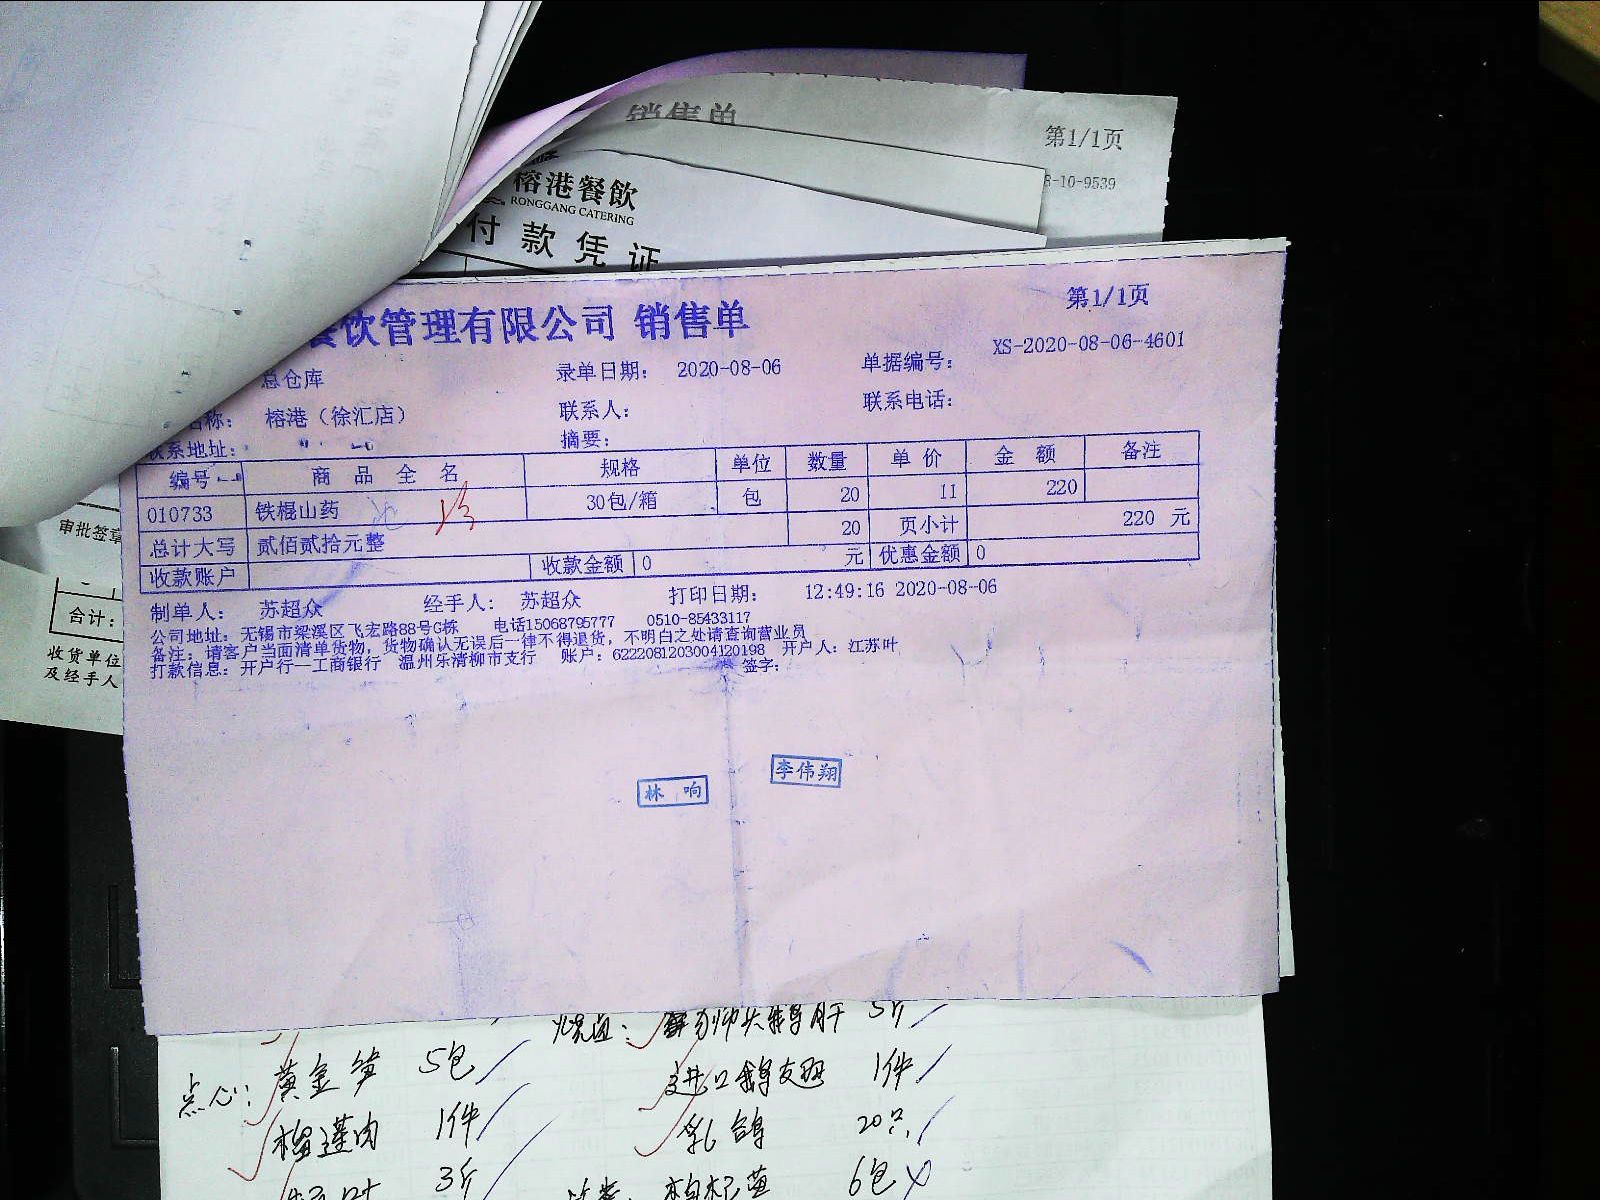 销售单
第1/1页
8-10-9539
榕港餐飲
RONGGANG CATERING
付款凭证
餐饮管理有限公司 销售单
第1/1页
总仓库 录单日期: 2020-08-06 单据编号: XS-2020-08-06-4601
名称: 榕港（徐汇店） 联系人: 联系电话:
联系地址: 摘要:
编号 商品全名 规格 单位 数量 单价 金额 备注
010733 铁棍山药 30包/箱 包 20 11 220
20 页小计 220 元
总计大写 贰佰贰拾元整
收款账户 收款金额 0 元 优惠金额 0
制单人: 苏超众 经手人: 苏超众 打印日期: 12:49:16 2020-08-06
公司地址: 无锡市梁溪区飞宏路88号G栋 电话15068795777 0510-85433117
备注: 请客户当面清单货物, 货物确认无误后一律不得退货, 不明白之处请查询营业员
打款信息: 开户行—工商银行 温州乐清柳市支行 账户: 6222081203004120198 开户人: 江苏叶
签字:
林响
李伟翔
审批签章
合计:
收货单位
及经手人
点心: 黄金笋 5包
榴莲肉 1件
3斤
5斤
进口鹅 1件
乳鸽 20只
6包